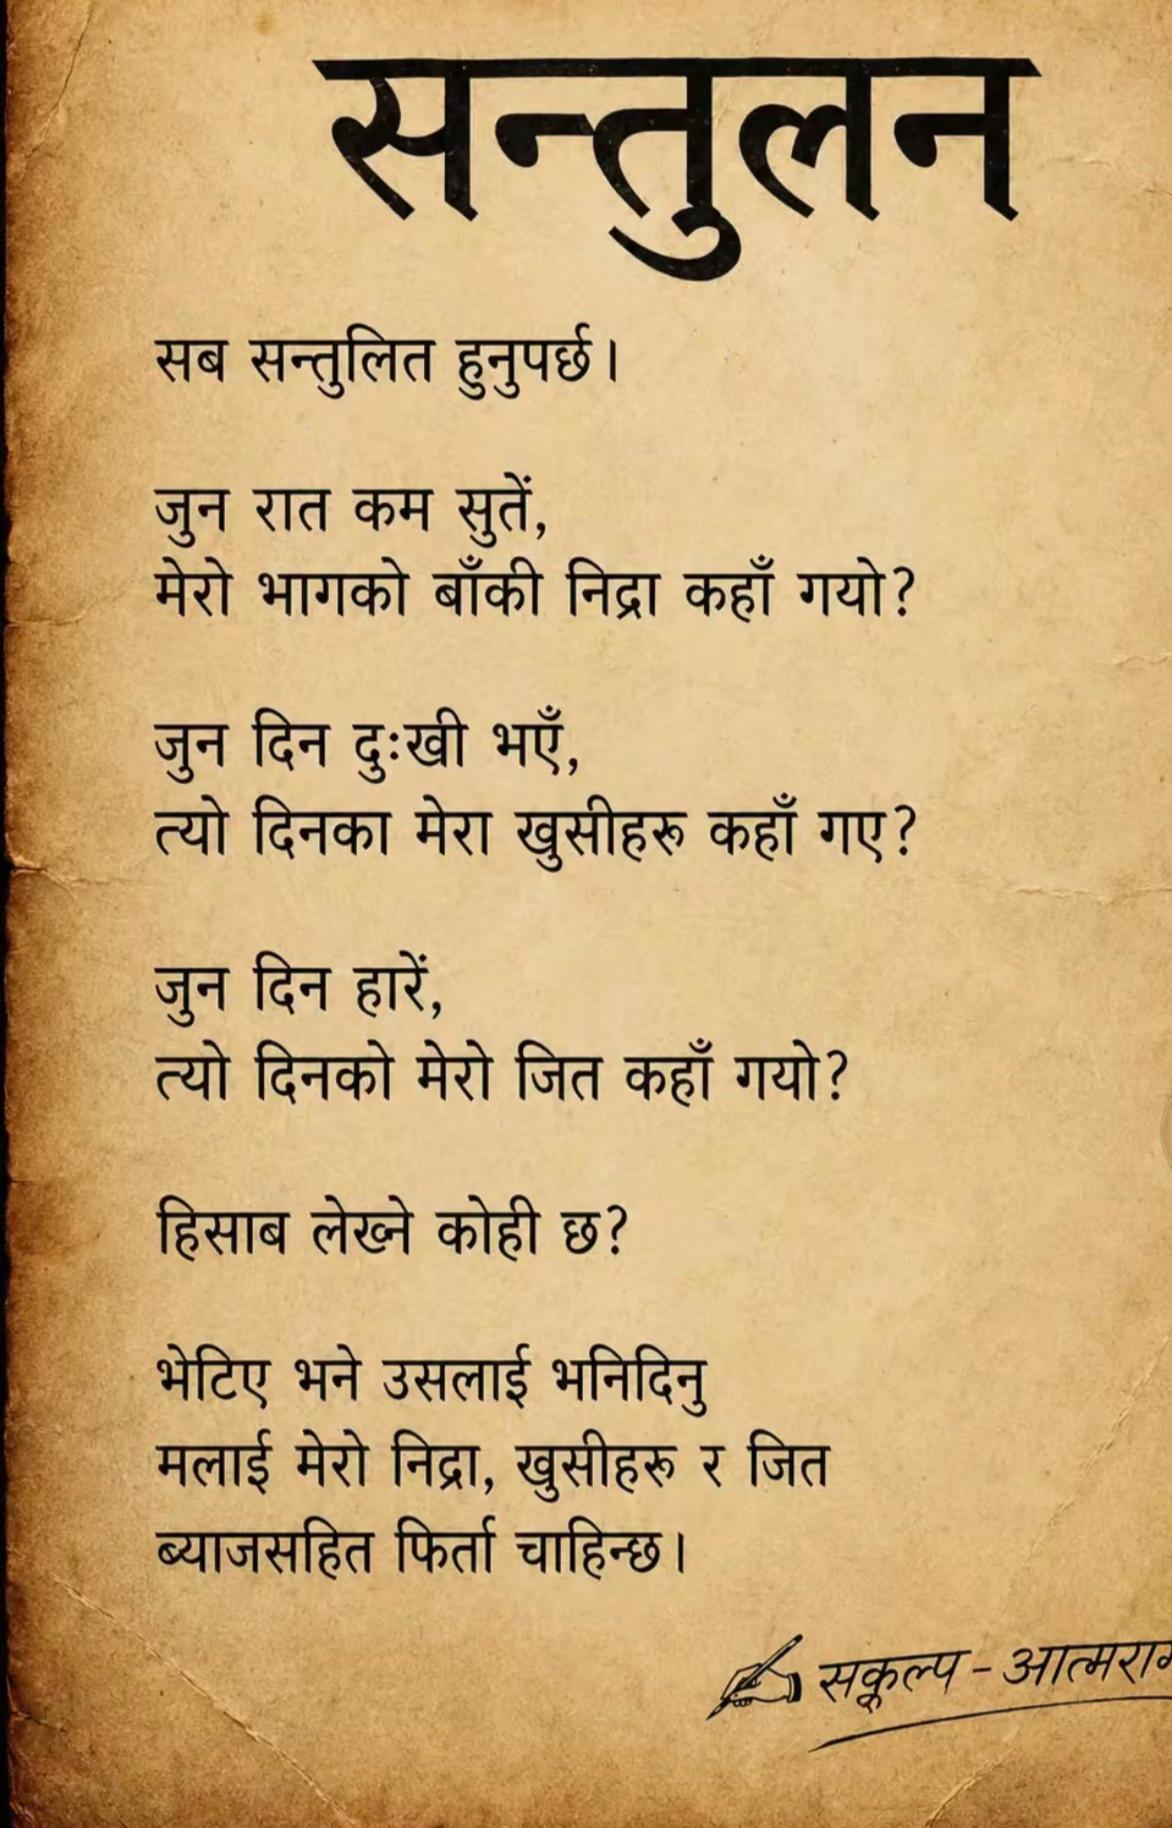 सन्तुलन
सब सन्तुलित हुनुपर्छ।
जुन रात कम सुतें,
मेरो भागको बाँकी निद्रा कहाँ गयो?
जुन दिन दुःखी भएँ,
त्यो दिनका मेरा खुसीहरू कहाँ गए?
जुन दिन हारें,
त्यो दिनको मेरो जित कहाँ गयो?
हिसाब लेख्ने कोही छ?
भेटिए भने उसलाई भनिदिनु
मलाई मेरो निद्रा, खुसीहरू र जित
ब्याजसहित फिर्ता चाहिन्छ।